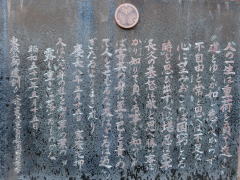 人の一生は重荷を負て遠き
道をゆくが如し急ぐべからず
不自由を常と思へば不足なし
心に望みおこらば困窮したる
時を思ひ出すべし堪忍は無事
長久の基怒は敵と思へ勝事ば
かり知りて負くる事を知らざれ
ば害其の身に至る己を責め
て人を責むるな及ばざるは過
ぎたるよりまされり
慶長八年正月十五日 家康
人はただ身の程を知れ草の葉の
露も重きは落つるものかな
昭和
東照宮